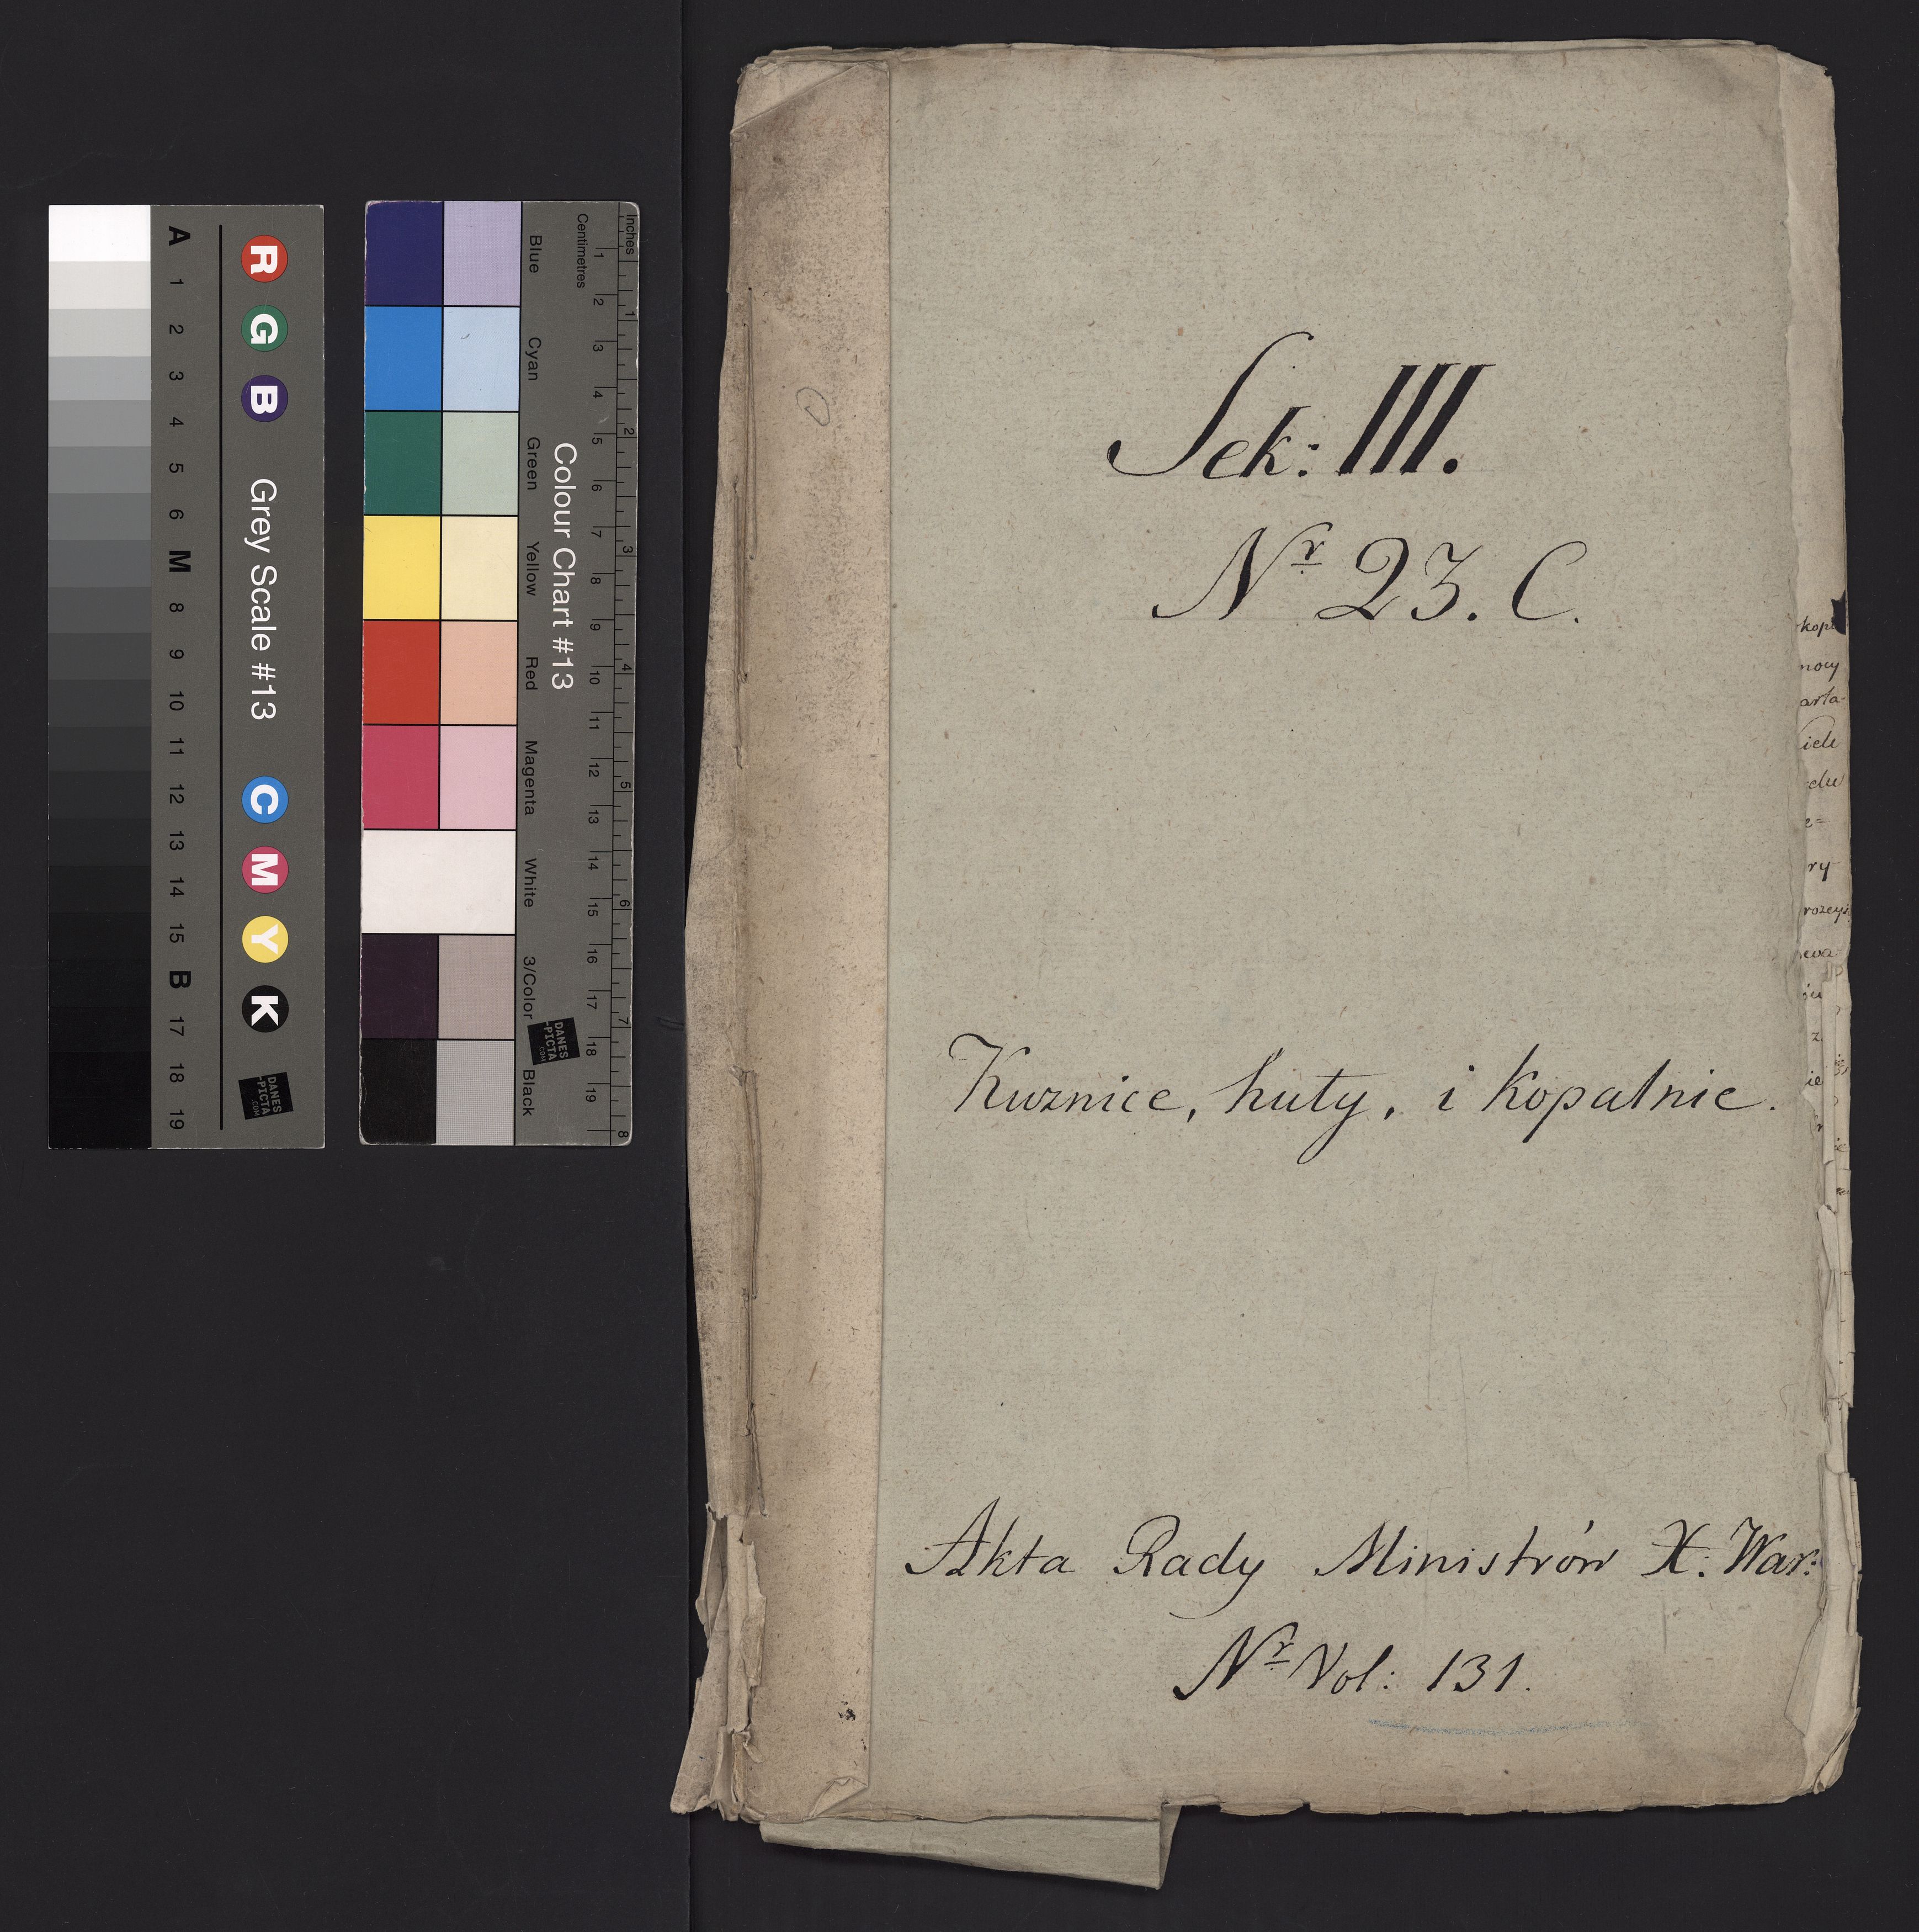 Sek: III.
Nr 23. C.
Kuznice, huty, i kopalnie.
Akta Rady Ministrów X. War:
Nr Vol: 131.
A 1 2 3 4 5 6 M 8 9 10 11 12 13 14 15 B 17 18 19
R G B Grey Scale #13 C M Y K
DANES
-PICTA
.COM
Blue Cyan Green Yellow Red Magenta White 3/Color Black
Colour Chart #13
DANES
-PICTA
.COM
Centimetres 1 2 3 4 5 6 7 8 9 10 11 12 13 14 15 16 17 18 19
Inches 1 2 3 4 5 6 7 8
kop
mocy
arta-
iele
celu
e=
ry